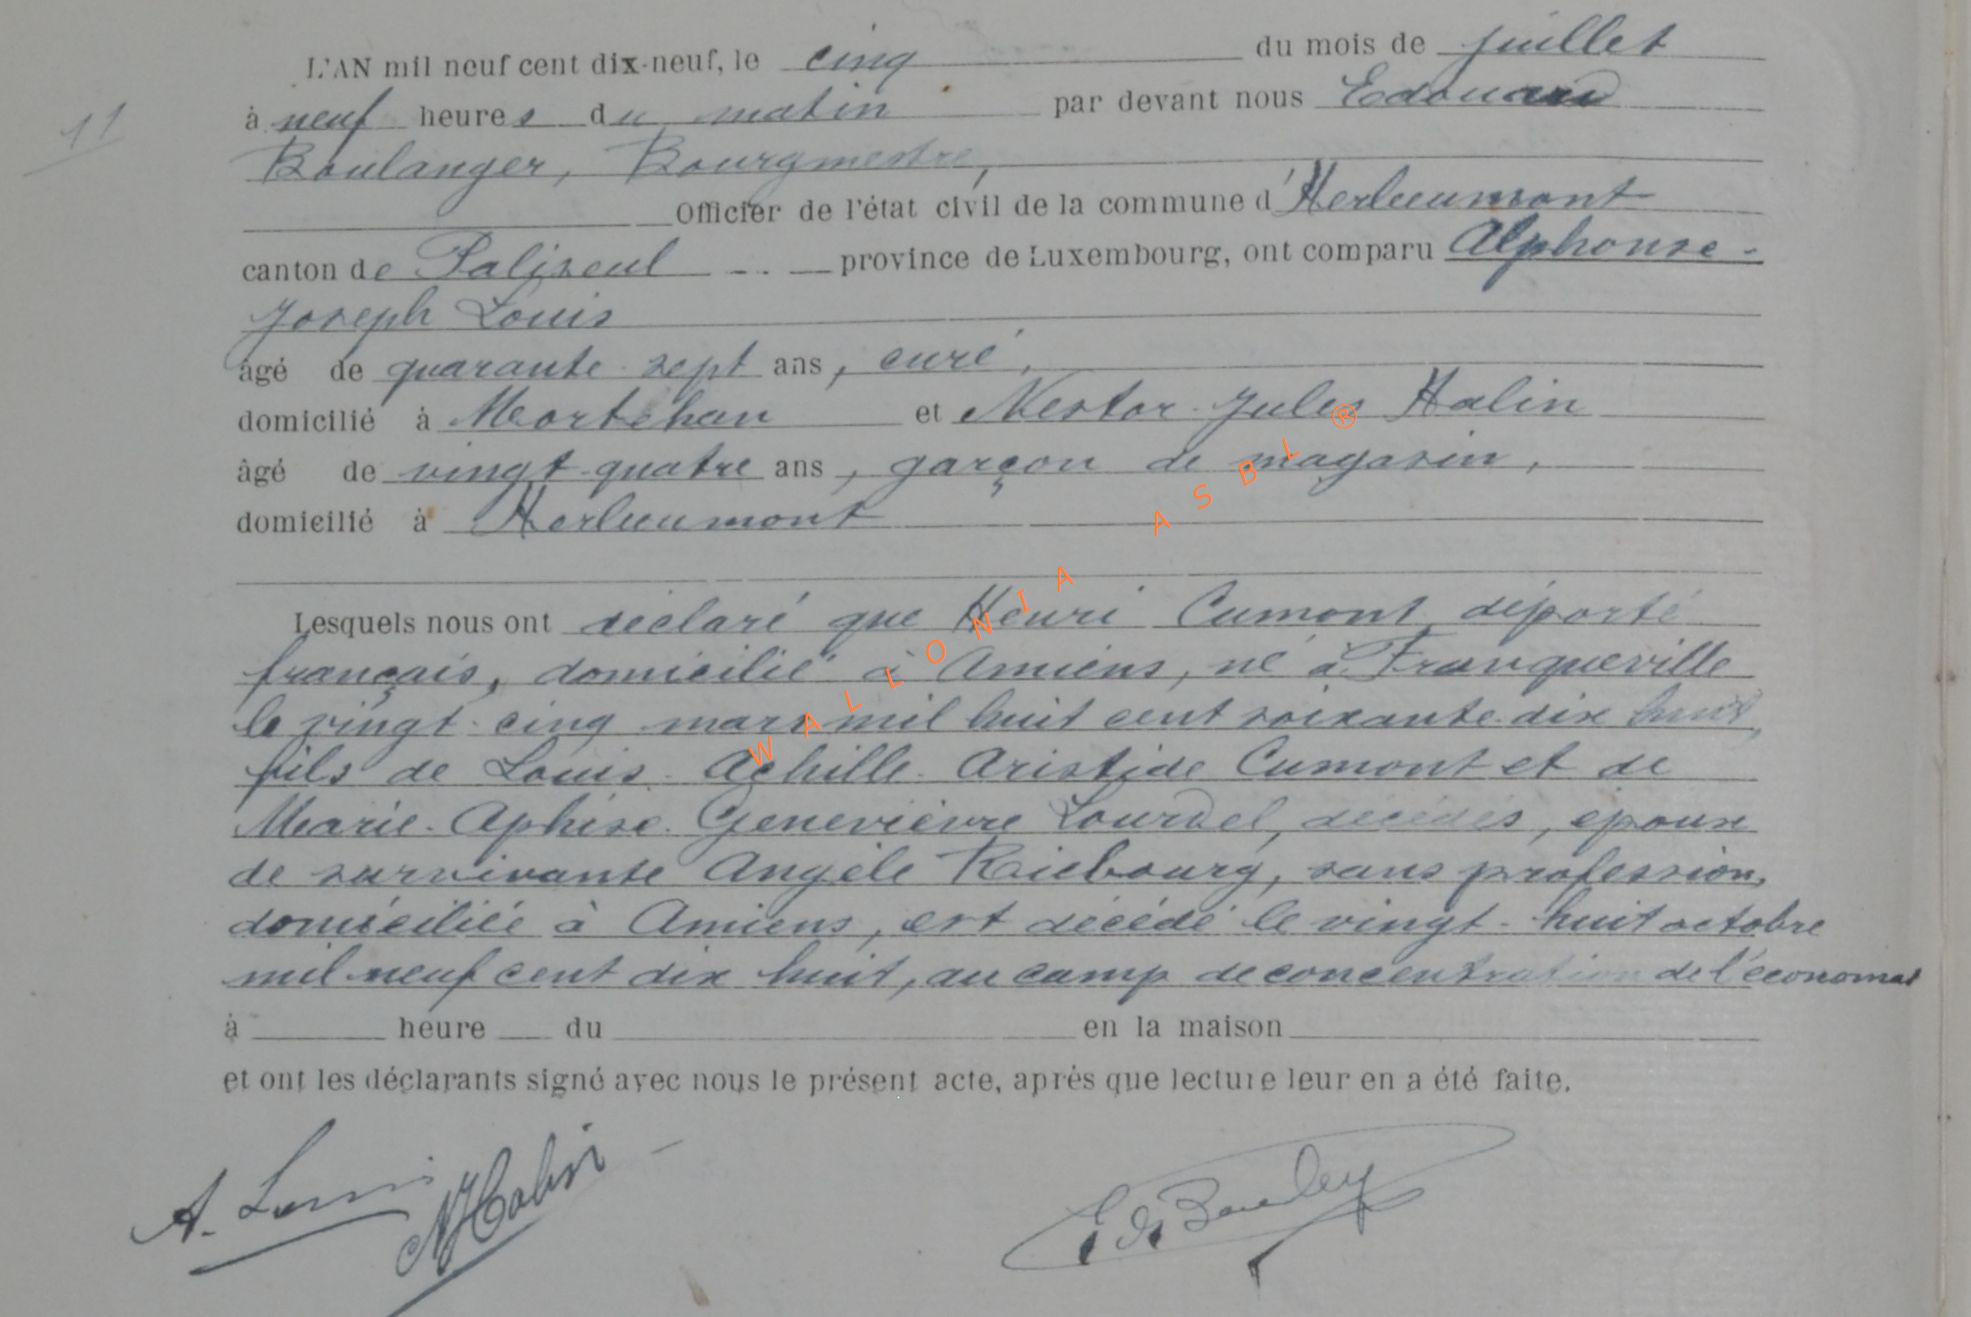 L'AN mil neuf cent dix-neuf, le cinq du mois de juillet
11
à neuf heures du matin par devant nous Edouard
Boulanger, Bourgmestre,
Officier de l'état civil de la commune d'Herbeumont
canton de Paliseul province de Luxembourg, ont comparu Alphonse-
Joseph Louis
âgé de quarante-sept ans, curé,
domicilié à Mortehan et Nestor-Jules Halin
âgé de vingt-quatre ans, garçon de magasin,
domicilié à Herbeumont
Lesquels nous ont déclaré que Henri Cumont, déporté
français, domicilié à Amiens, né à Franqueville
le vingt-cinq mars mil huit cent soixante-dix huit,
fils de Louis-Achille-Aristide Cumont et de
Marie-Aphise-Geneviève Lourdel, décédés, époux
de survivante Angèle Riebourg, sans profession,
domiciliée à Amiens, est décédé le vingt-huit octobre
mil neuf cent dix huit, au camp de concentration de l'économat
à heure du en la maison
et ont les déclarants signé avec nous le présent acte, après que lecture leur en a été faite.
A. Louis NJHalin
WALLONIA ASBL ®